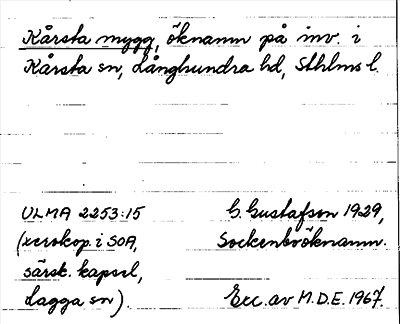 Kårsta mygg, öknamn på inv. i
Kårsta sn, Långhundra hd, Sthlms l.
ULMA 2253:15
(xerokop. i SOA,
särsk. kapsel,
Lagga sn).
G. Gustafson 1929,
Sockenboöknamn.
Exc. av M.D.E. 1967.